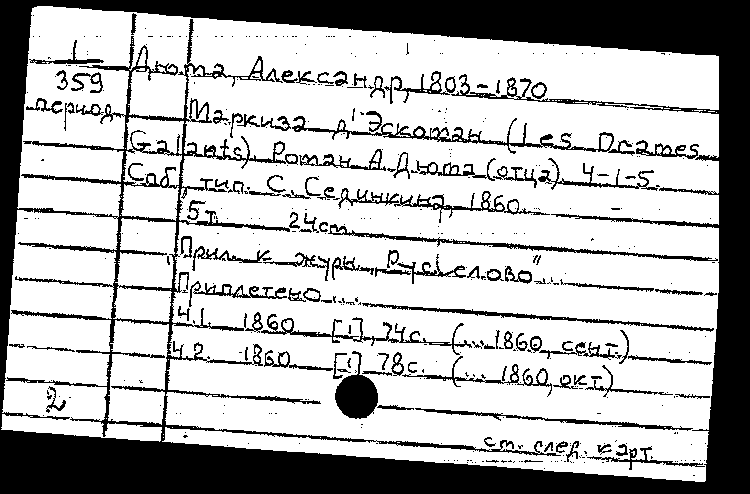 1
359
период
Дюма, Александр, 1803-1870
Маркиза д'Эскоман (Les Drames
Galants). Роман А. Дюма (отца). Ч-1-5.
Спб, тип. С. Сединкина, 1860.
5 т. 24 cm.
"Прил. к журн. „Русск слово"...
"Приплетено ...
Ч.1. 1860 [1], 74 с. (... 1860, сент.)
Ч.2. 1860 [1] 78 с. (... 1860, окт.)
2
см. след. карт.